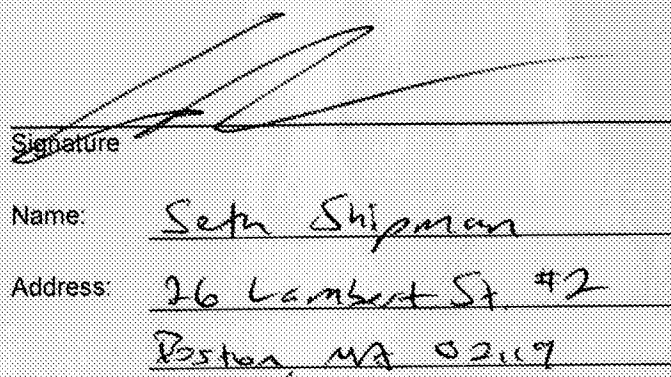 Signature
Name: Seth Shipman
Address: 26 Lambert St. #2
Boston, MA 02119